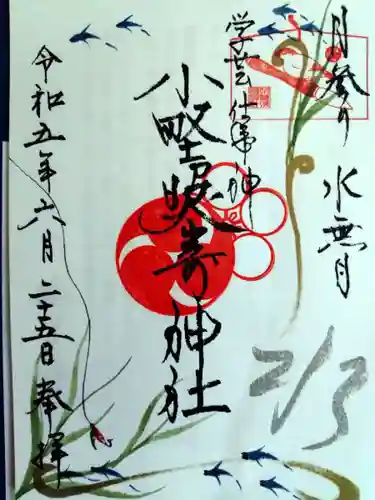 月参り 水無月
学芸仕事神
小野照崎神社
令和五年六月二十五日奉拝
2/3